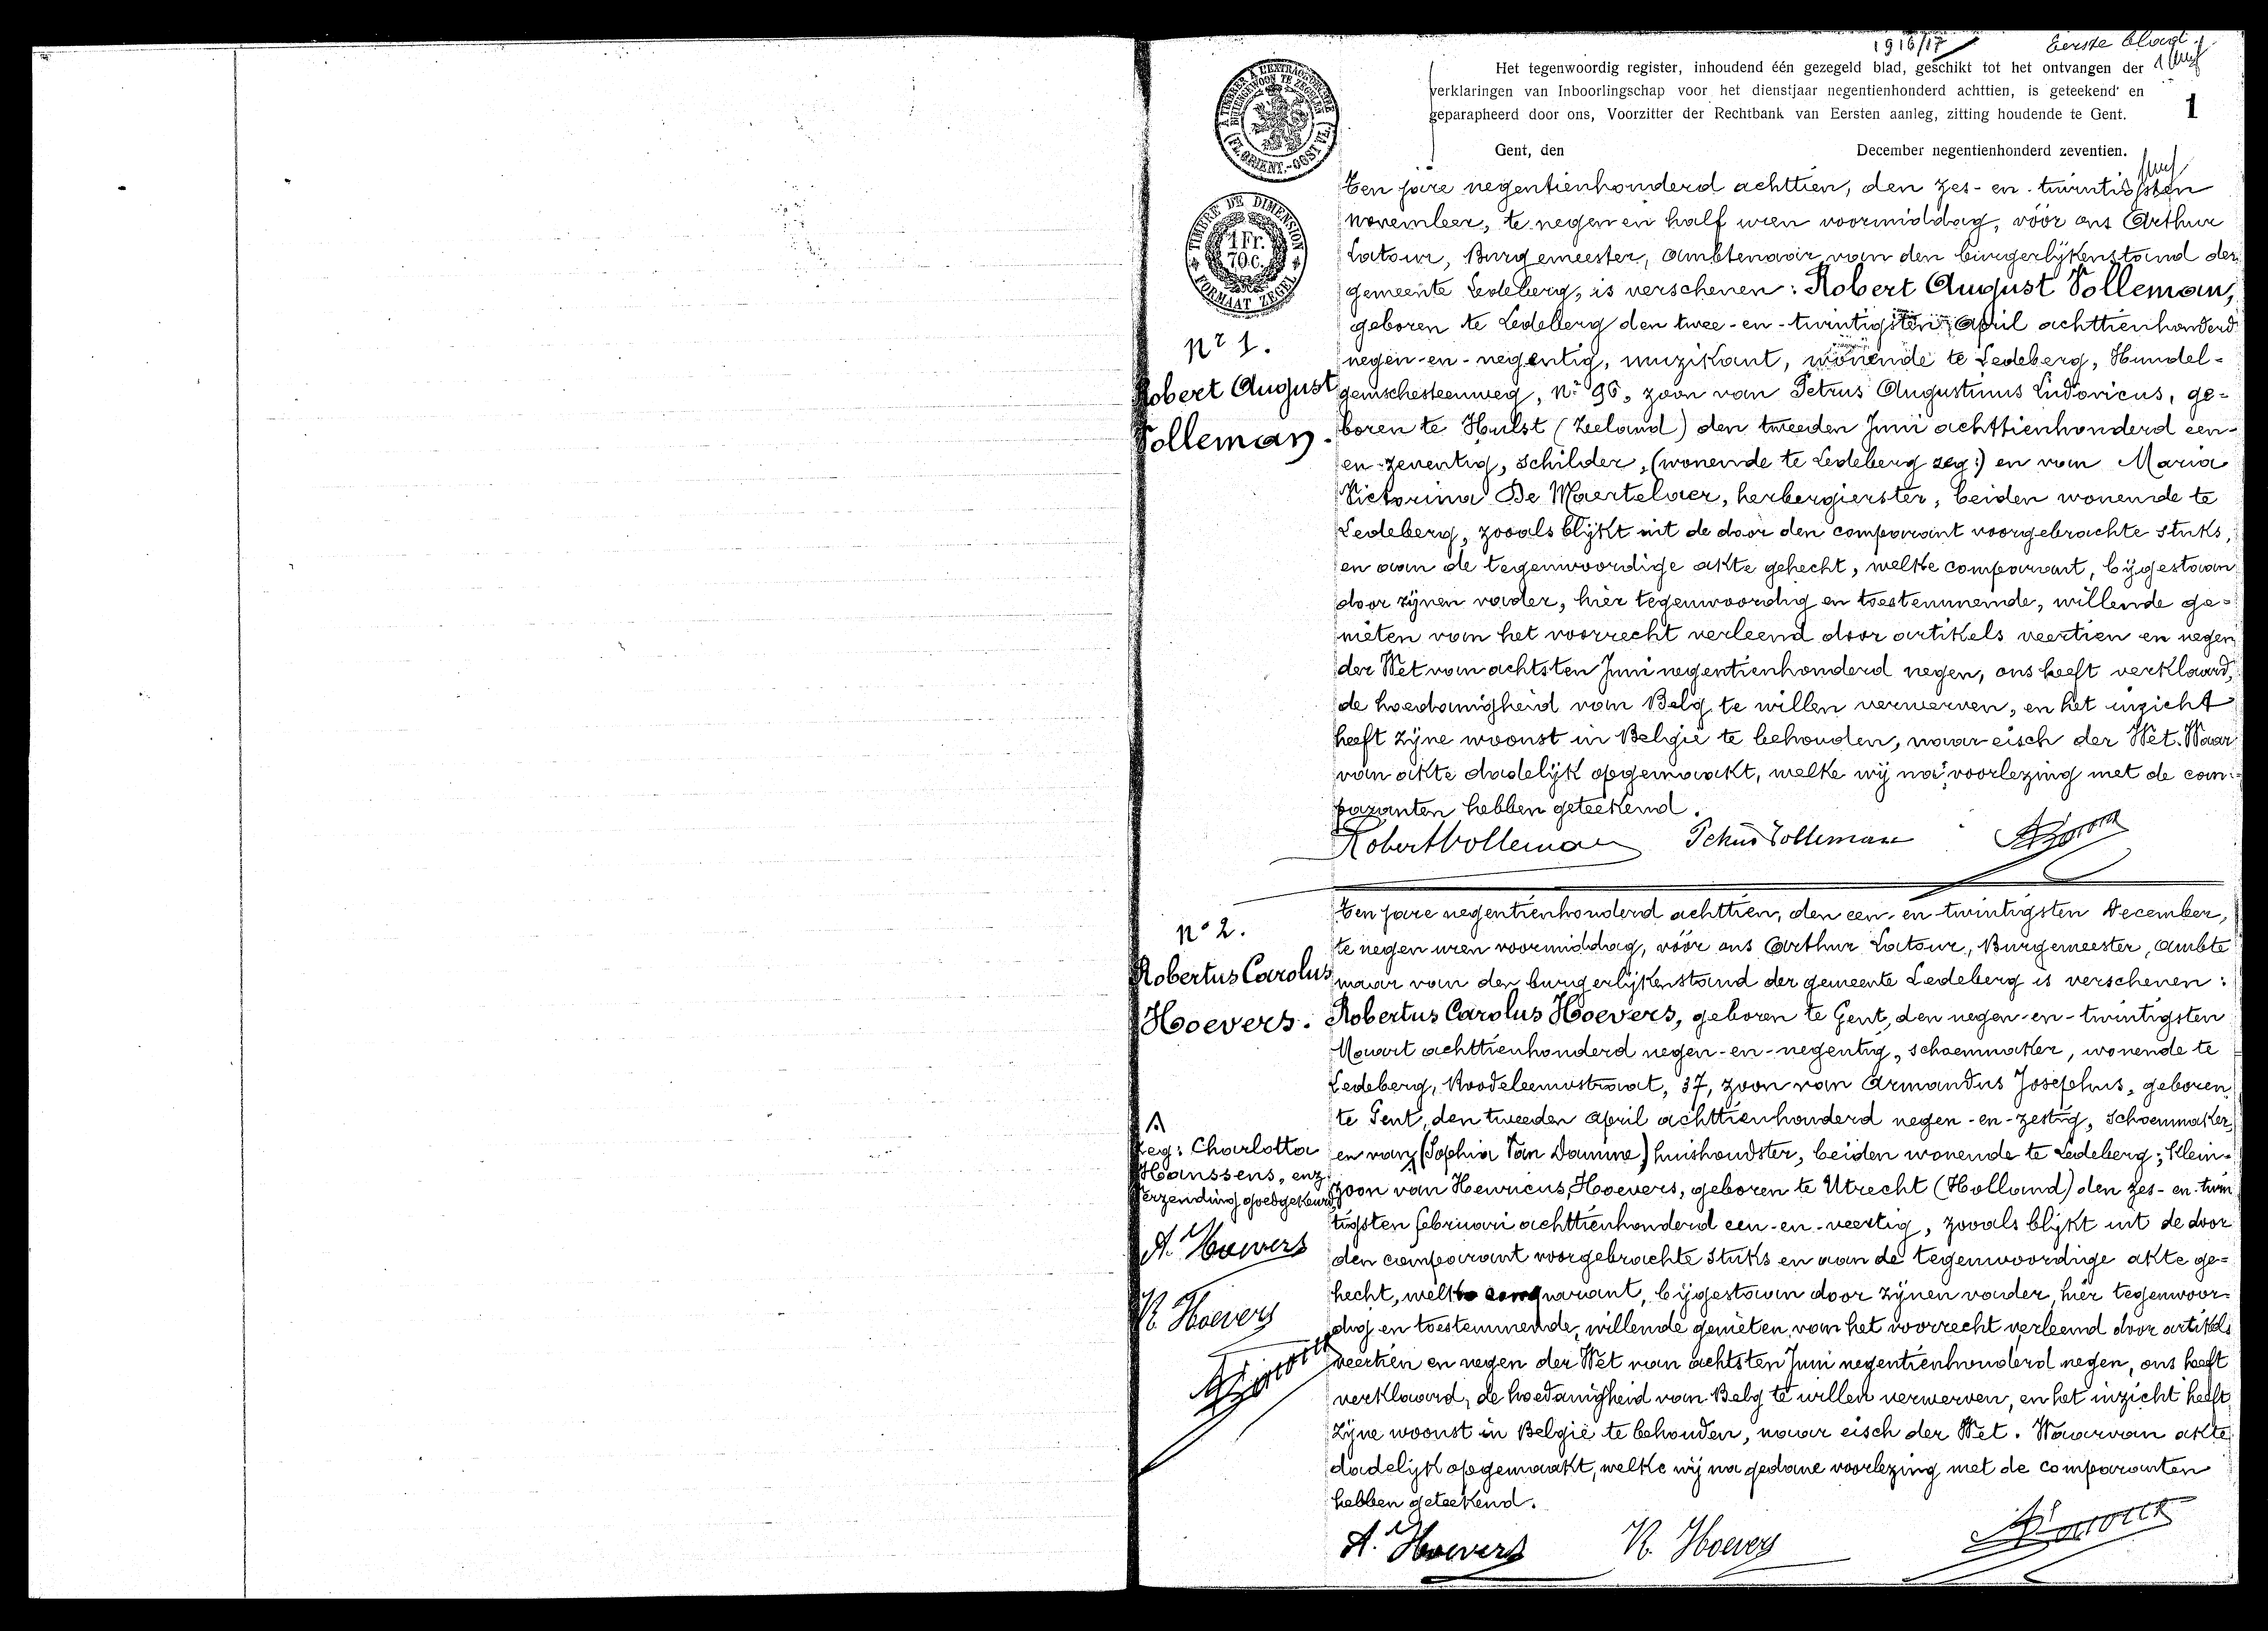 1916/17
Eerste blad.
Het tegenwoordig register, inhoudend één gezegeld blad, geschikt tot het ontvangen der
verklaringen van Inboorlingschap voor het dienstjaar negentienhonderd achttien, is geteekend en
geparapheerd door ons, Voorzitter der Rechtbank van Eersten aanleg, zitting houdende te Gent.
1
Gent, den December negentienhonderd zeventien.
A TIMBRER A L'EXTRAORDRE
BUITENGEWOON TE ZEGELEN
(FL. ORIENT.-OOST VL.)
TIMBRE DE DIMENSION
1 Fr.
70 c.
FORMAAT ZEGEL
Nr 1.
Robert August
Volleman.
Ten jare negentienhonderd achttien, den zes-en-twintigsten
november, te negen en half uren voormiddag, vóór ons Arthur
Latour, Burgemeester, ambtenaar van den burgerlijkenstand der
gemeente Ledeberg, is verschenen: Robert August Volleman,
geboren te Ledeberg den twee-en-twintigsten April achttienhonderd
negen-en-negentig, muzikant, wonende te Ledeberg, Hundel-
gemschesteenweg, Nr 96, zoon van Petrus Augustinus Ludovicus, ge-
boren te Hulst (Zeeland) den tweeden Juni achttienhonderd een-
en-zeventig, schilder, (wonende te Ledeberg zeg:) en van Maria
Victorina De Maertelaer, herbergierster, beiden wonende te
Ledeberg, zooals blijkt uit de door den comparant voorgebrachte stuks,
en aan de tegenwoordige akte gehecht, welke comparant, bijgestaan
door zijnen vader, hier tegenwoordig en toestemmende, willende ge-
nieten van het voorrecht verleend door artikels veertien en negen
der Wet van achtsten Juni negentienhonderd negen, ons heeft verklaard,
de hoedanigheid van Belg te willen verwerven, en het inzicht
heeft zijne woonst in België te behouden, naar eisch der Wet. Waar
van akte dadelijk opgemaakt, welke wij na voorlezing met de com-
paranten hebben geteekend.
Robert Volleman Petrus Volleman A Latour
N° 2.
Robertus Carolus
Hoevers.
Ten jare negentienhonderd achttien, den een-en-twintigsten December,
te negen uren voormiddag, vóór ons Arthur Latour, Burgemeester, ambte
naar van den burgerlijkenstand der gemeente Ledeberg is verschenen:
Robertus Carolus Hoevers, geboren te Gent, den negen-en-twintigsten
Maart achttienhonderd negen-en-negentig, schoenmaker, wonende te
Ledeberg, 37, zoon van Armandus Josephus, geboren
te Gent, den tweeden April achttienhonderd negen-en-zestig, schoenmaker,
en van (Sophia Van Damme) huishoudster, beiden wonende te Ledeberg; Klein-
zoon van Henricus Hoevers, geboren te Utrecht (Holland) den zes-en-twin
tigsten februari achttienhonderd een-en-veertig, zooals blijkt uit de door
den comparant voorgebrachte stuks en aan de tegenwoordige akte ge-
hecht, welke comparant, bijgestaan door zijnen vader, hier tegenwoor-
dig en toestemmende, willende genieten van het voorrecht verleend door artikels
veertien en negen der Wet van achtsten Juni negentienhonderd negen, ons heeft
verklaard, de hoedanigheid van Belg te willen verwerven, en het inzicht heeft
zijne woonst in België te behouden, naar eisch der Wet. Waarvan akte
dadelijk opgemaakt, welke wij na gedane voorlezing met de comparanten
hebben geteekend.
Zeg: Charlotta
Hanssens, enz.
Verzending goedgekeurd
A. Hoevers
R. Hoevers
A Latour
A. Hoevers R. Hoevers A Latour